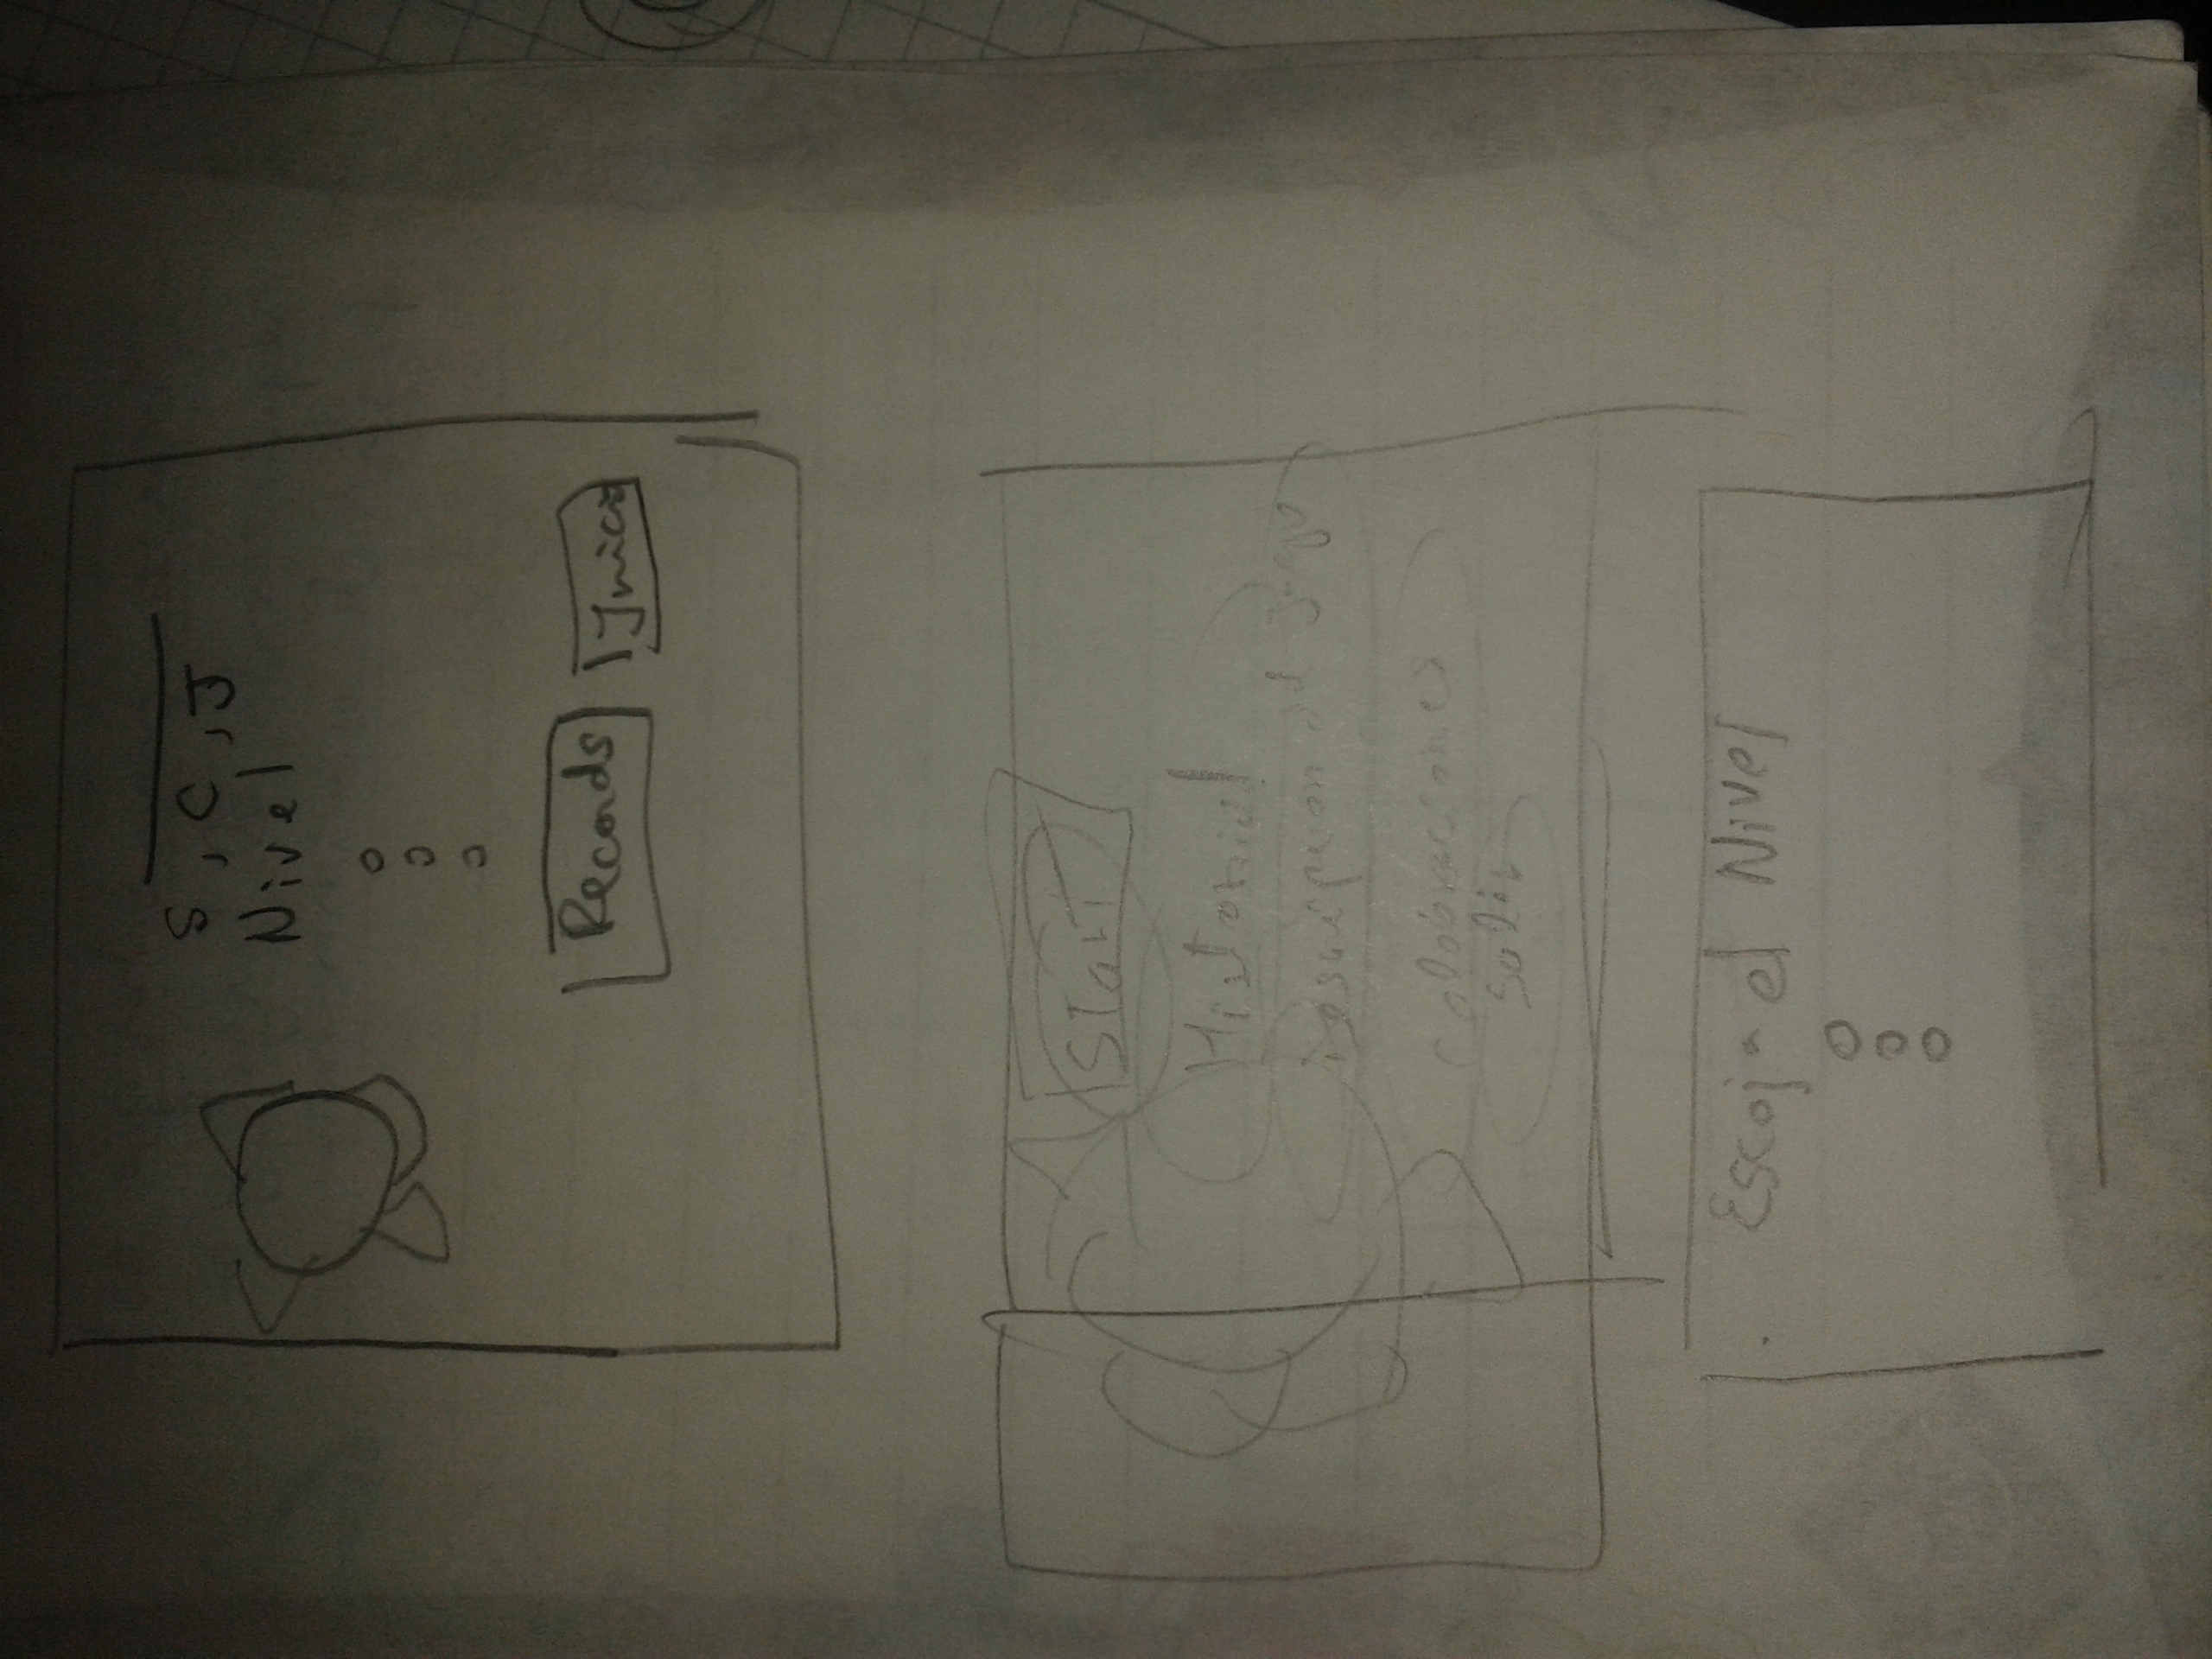 S, C, J
Nivel
Records
Inicio
Start
Historial
Descripcion del Juego
Colaboraciones
Salir
Escoja el Nivel